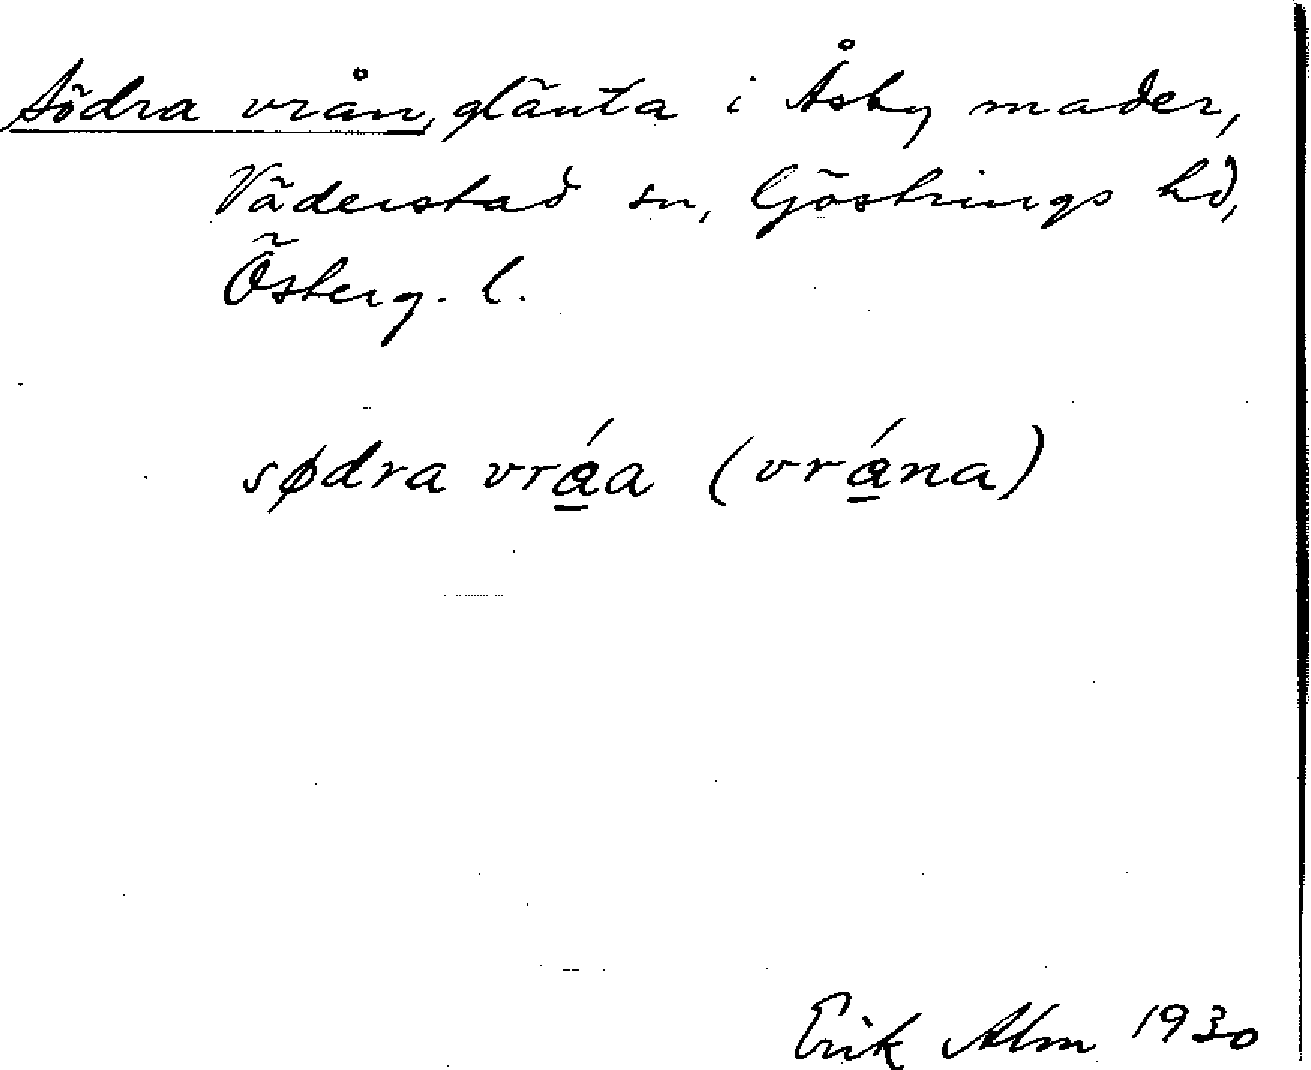 Södra vrån, glänta i Åsby mader,
Väderstad sn, Göstrings hd,
Österg. l.
sødra vrá̱a (vrá̱na)
Erik Alm 1930